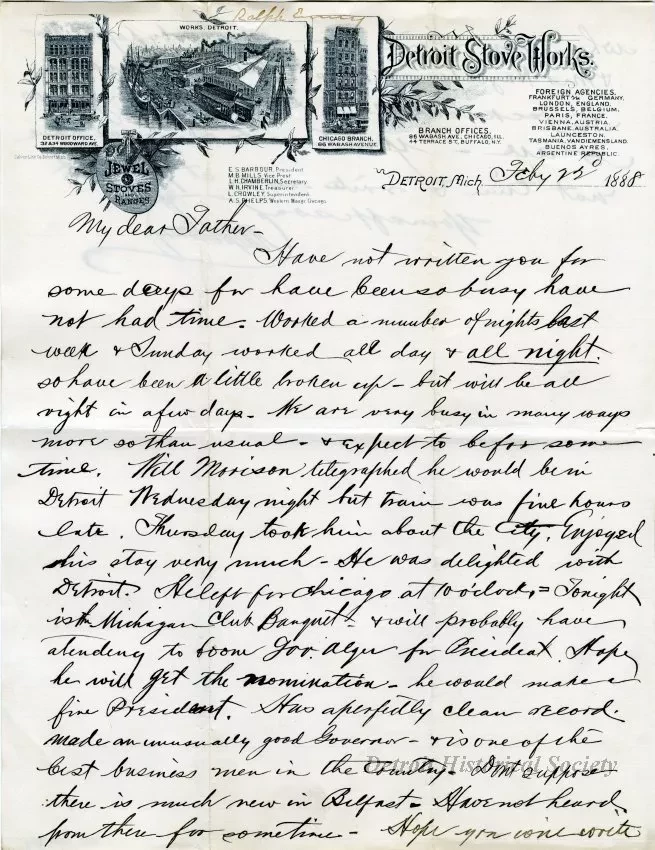 Ralph Emery
WORKS. DETROIT.
Detroit Stove Works.
DETROIT OFFICE,
32 & 34 WOODWARD AVE.
CHICAGO BRANCH,
86 WABASH AVENUE.
JEWEL
STOVES
AND
RANGES
E. S. BARBOUR, President
M. B. MILLS, Vice Prest.
L. H. CHAMBERLIN, Secretary
W. H. IRVINE, Treasurer
L. CROWLEY, Superintendent
A. S. PHELPS, Western Mangr Chicago
BRANCH OFFICES,
86 WABASH AVE., CHICAGO, ILL.
44 TERRACE ST., BUFFALO, N.Y.
FOREIGN AGENCIES.
FRANKFURT GERMANY,
LONDON, ENGLAND.
BRUSSELS, BELGIUM,
PARIS, FRANCE.
VIENNA, AUSTRIA.
BRISBANE, AUSTRALIA.
LAUNCESTON,
TASMANIA, VANDIEMENSLAND.
BUENOS AYRES,
ARGENTINE REPUBLIC.
DETROIT, Mich Feby 1888
My dear Father—
Have not written you for
some days for have been so busy have
not had time. Worked a number of nights last
week & Sunday worked all day & all night.
so have been a little broken up – but will be all
right in a few days – We are very busy in many ways
more so than usual – & expect to be for some
time. Will Morison telegraphed he would be in
Detroit Wednesday night but train was five hours
late. Thursday took him about the city. Enjoyed
his stay very much – He was delighted with
Detroit. He left for Chicago at 10 o'clock = Tonight
is the Michigan Club Banquet – & will probably have
a tendency to boom Gov. Alger for President. Hope
he will get the nomination – he would make a
fine President. Has a perfectly clean record.
made an unusually good Governor – & is one of the
best business men in the Country – Dont suppose
there is much new in Belfast – Have not heard
from there for sometime – Hope you will write
Detroit Historical Society